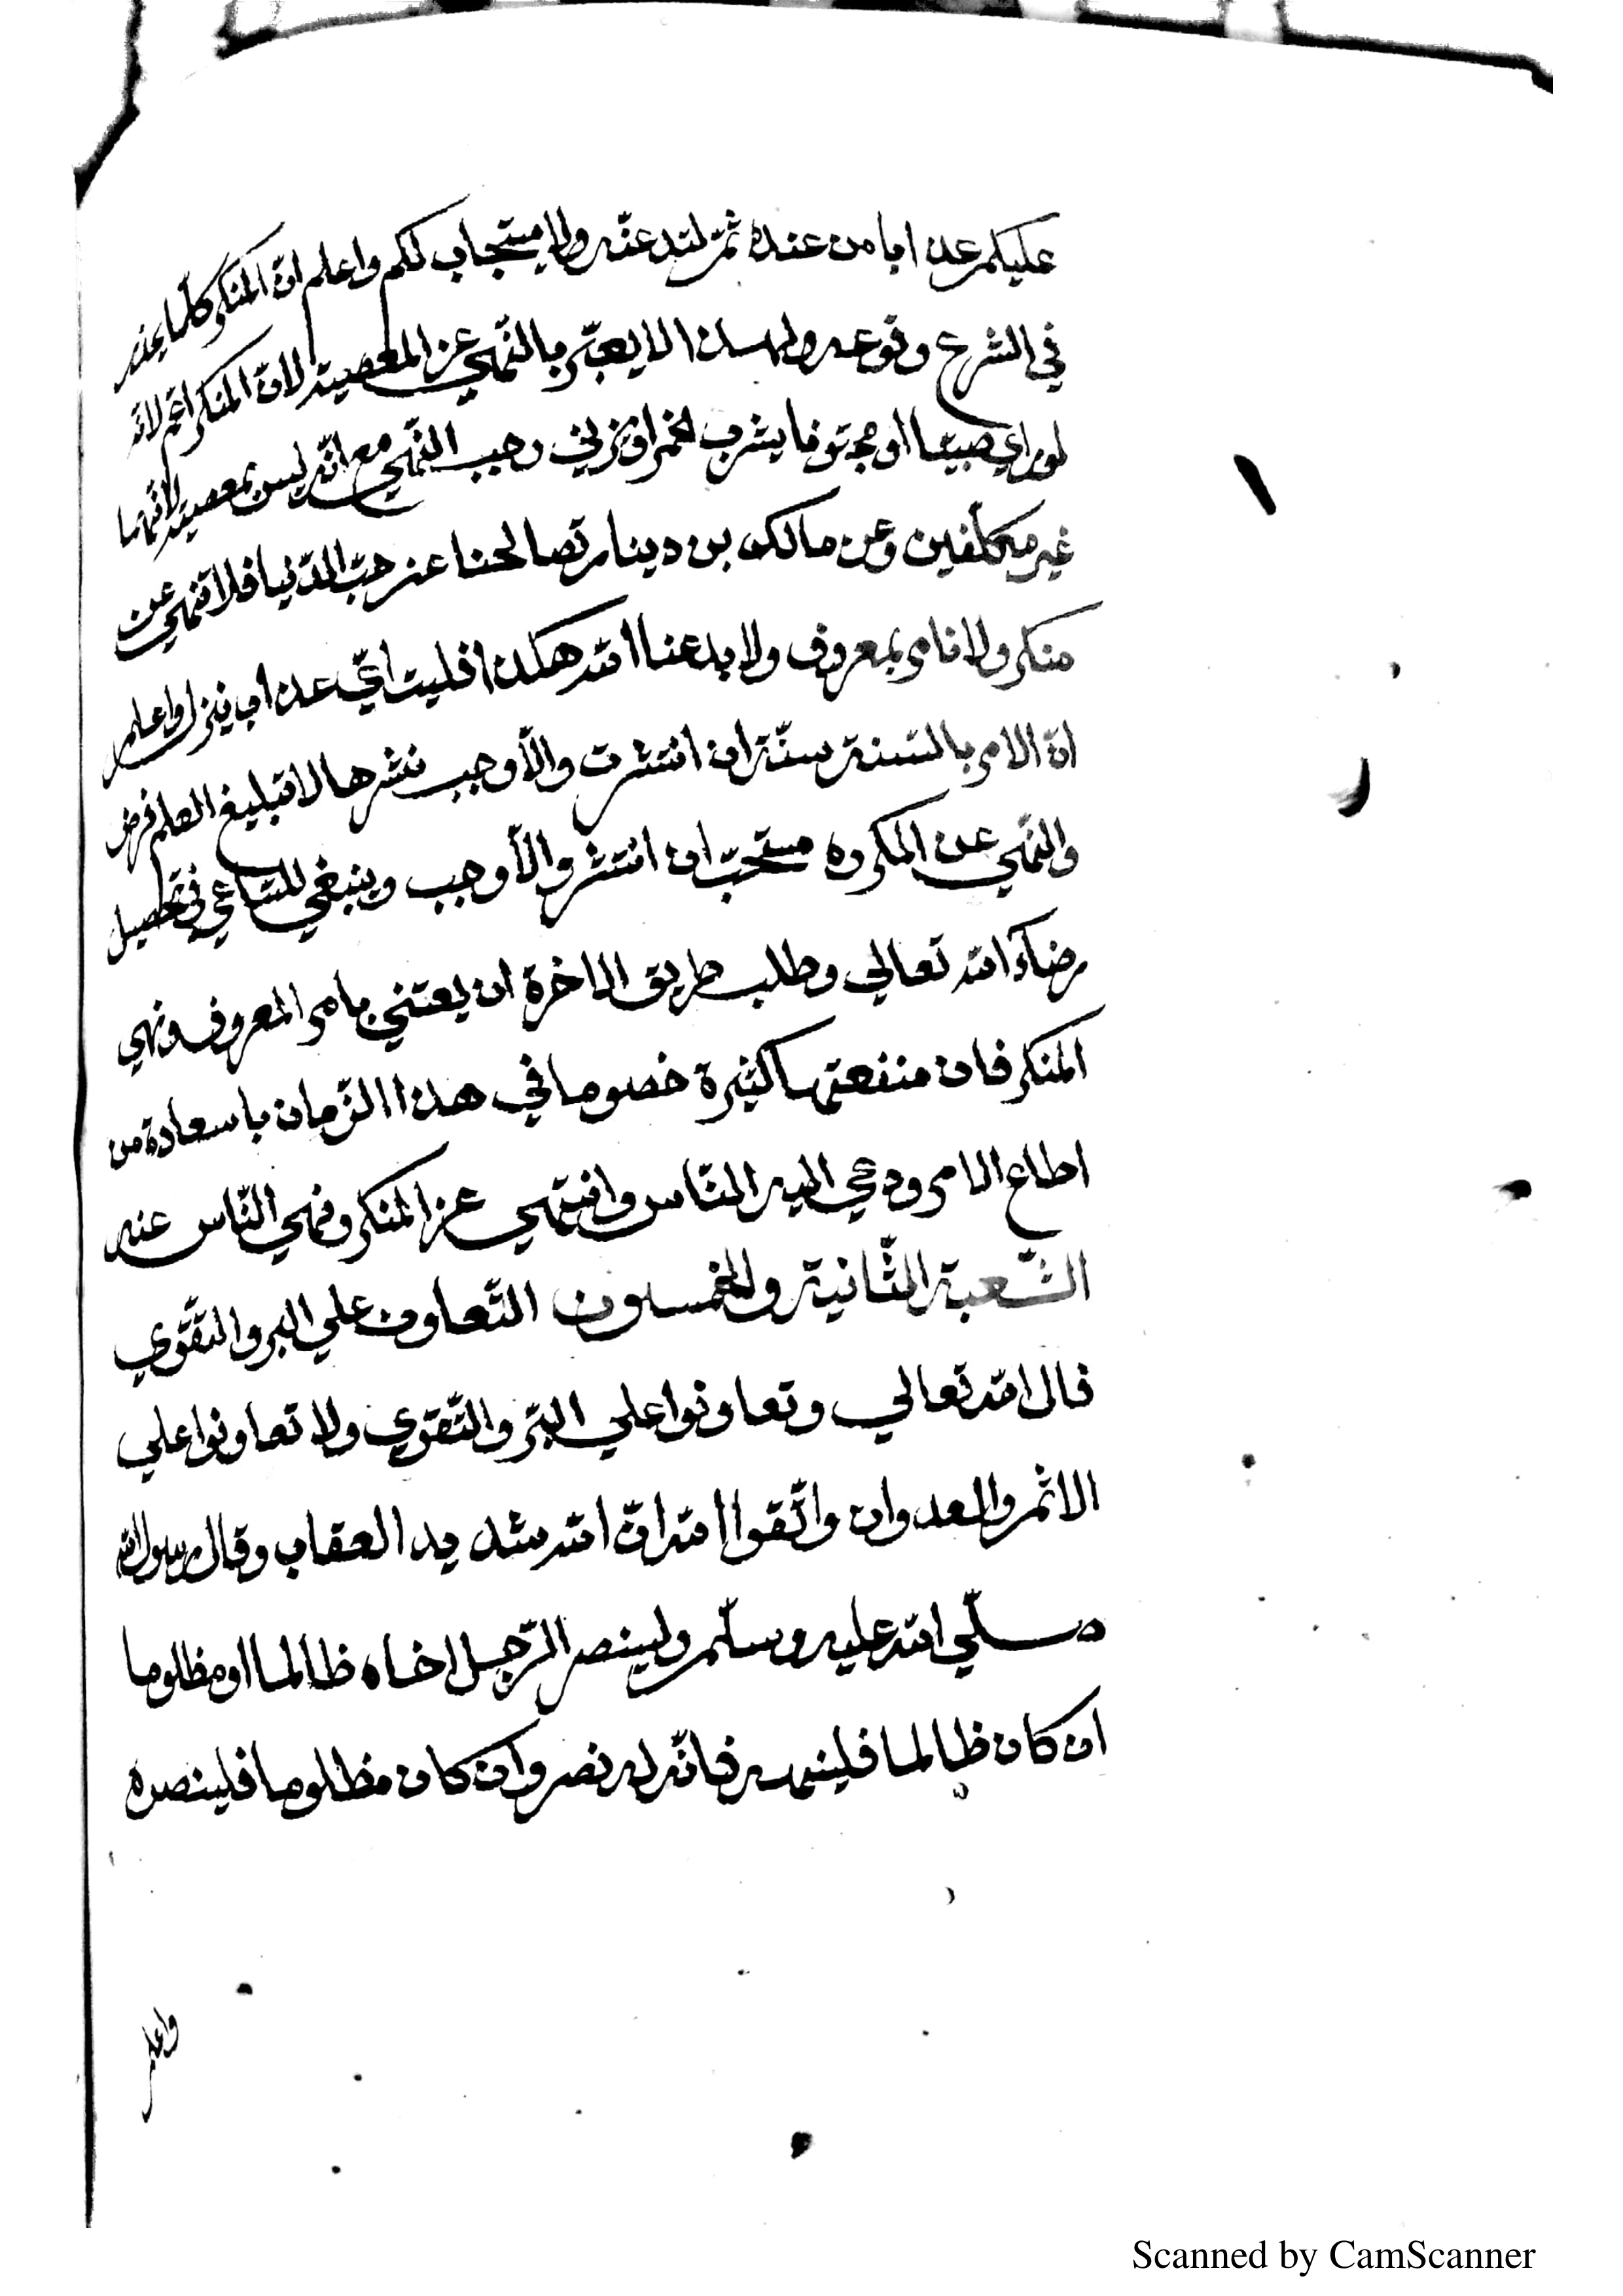 عليكم عذابا من عنده ثم لتدعنّه ولا يستجاب لكم واعلم انّ المنكر كلّما يحذر
في الشرع وقوعه ولهذا لا يعبّر بالنّهي عن المعصية لانّ المنكر اعم لانّه
لو راي صبيّا او مجنونا يشرب الخمر او يزني وجب النّهي مع انّه ليس بمعصية لانّهما
غير مكلّفين وعن مالك بن دينار تصالحنا عن حبّ الدّنيا فلا ننهي عن
منكر ولا نامر بمعروف ولا يدعنا الله هكذا فليت ايّ عذاب ينزل واعلم
انّ الامر بالسّنة سنّة ان انتشرت والّا وجب نشرها لا تبليغ العلم فرض
والنّهي عن المكروه مستحبّ ان انتشر والّا وجب وينبغي للسّاعي في تحصيل
رضاء الله تعالي وطلب طريق الاخرة ان يعتني بامر المعروف ونهي
المنكر فان منفعتها كثيرة خصوصا في هذا الزّمان يا سعادة من
اطاع الامر ودعي اليه النّاس وانتهي عن المنكر ونهي النّاس عنه
الشّعبة الثّانية والخمسون التّعاون علي البر والتّقوي
قال الله تعالي وتعاونوا علي البرّ والتّقوي ولا تعاونوا علي
الاثم والعدوان واتّقوا الله انّ الله شديد العقاب وقال رسول الله
صلّي الله عليه وسلّم ولينصر الرّجل اخاه ظالما او مظلوما
ان كان ظالما فلينهه فانّه له نصر وان كان مظلوما فلينصره
واعلم
Scanned by CamScanner